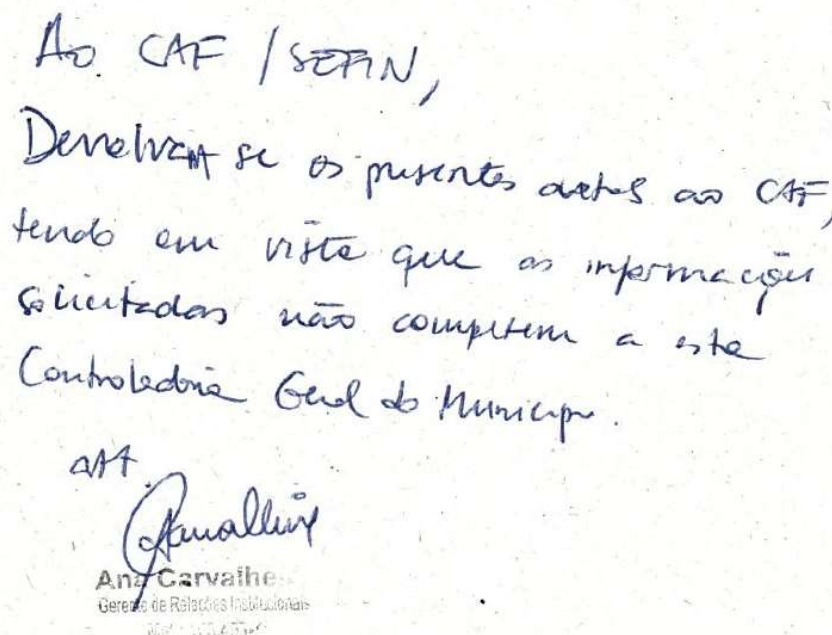 Ao CAF / SEFIN,
Devolvam se os presentes autos ao CAF,
tendo em vista que as informações
solicitadas não competem a esta
Controladoria Geral do Município.
att.
Ana Carvalho
Gerente de Relações Institucionais